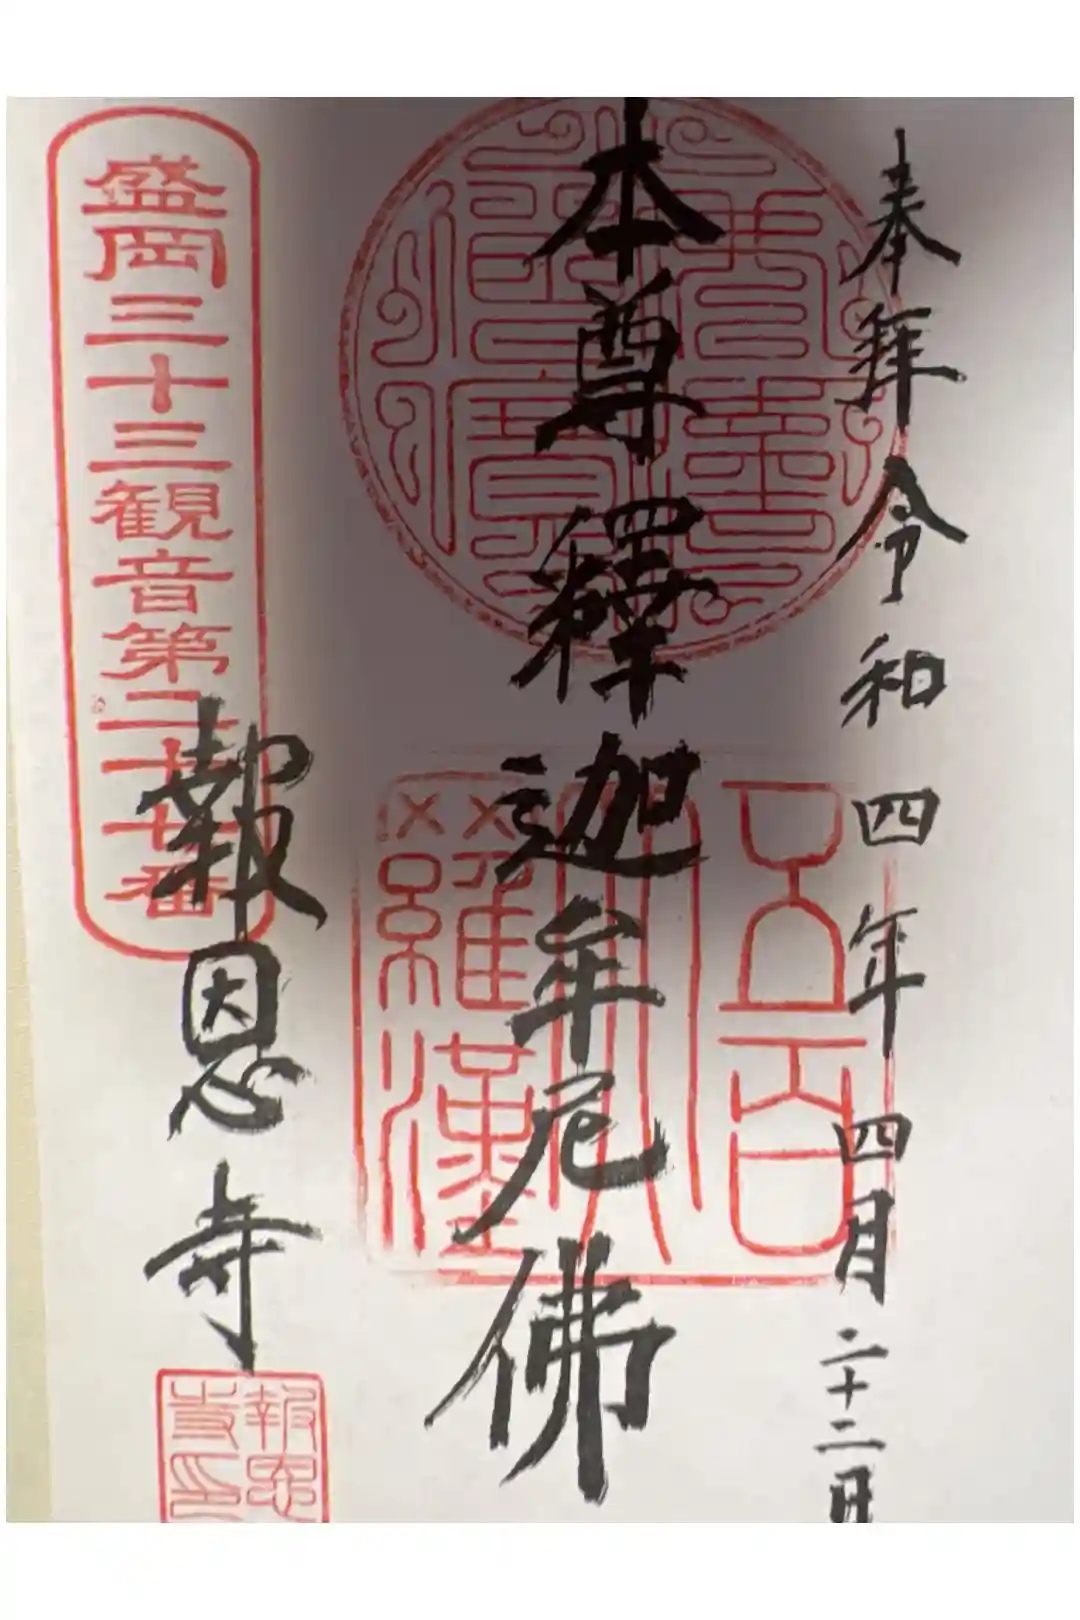 奉拜 令和四年 四月二十二日
本尊釋迦牟尼佛
五百大羅漢
報恩寺
盛岡三十三観音第二十七番